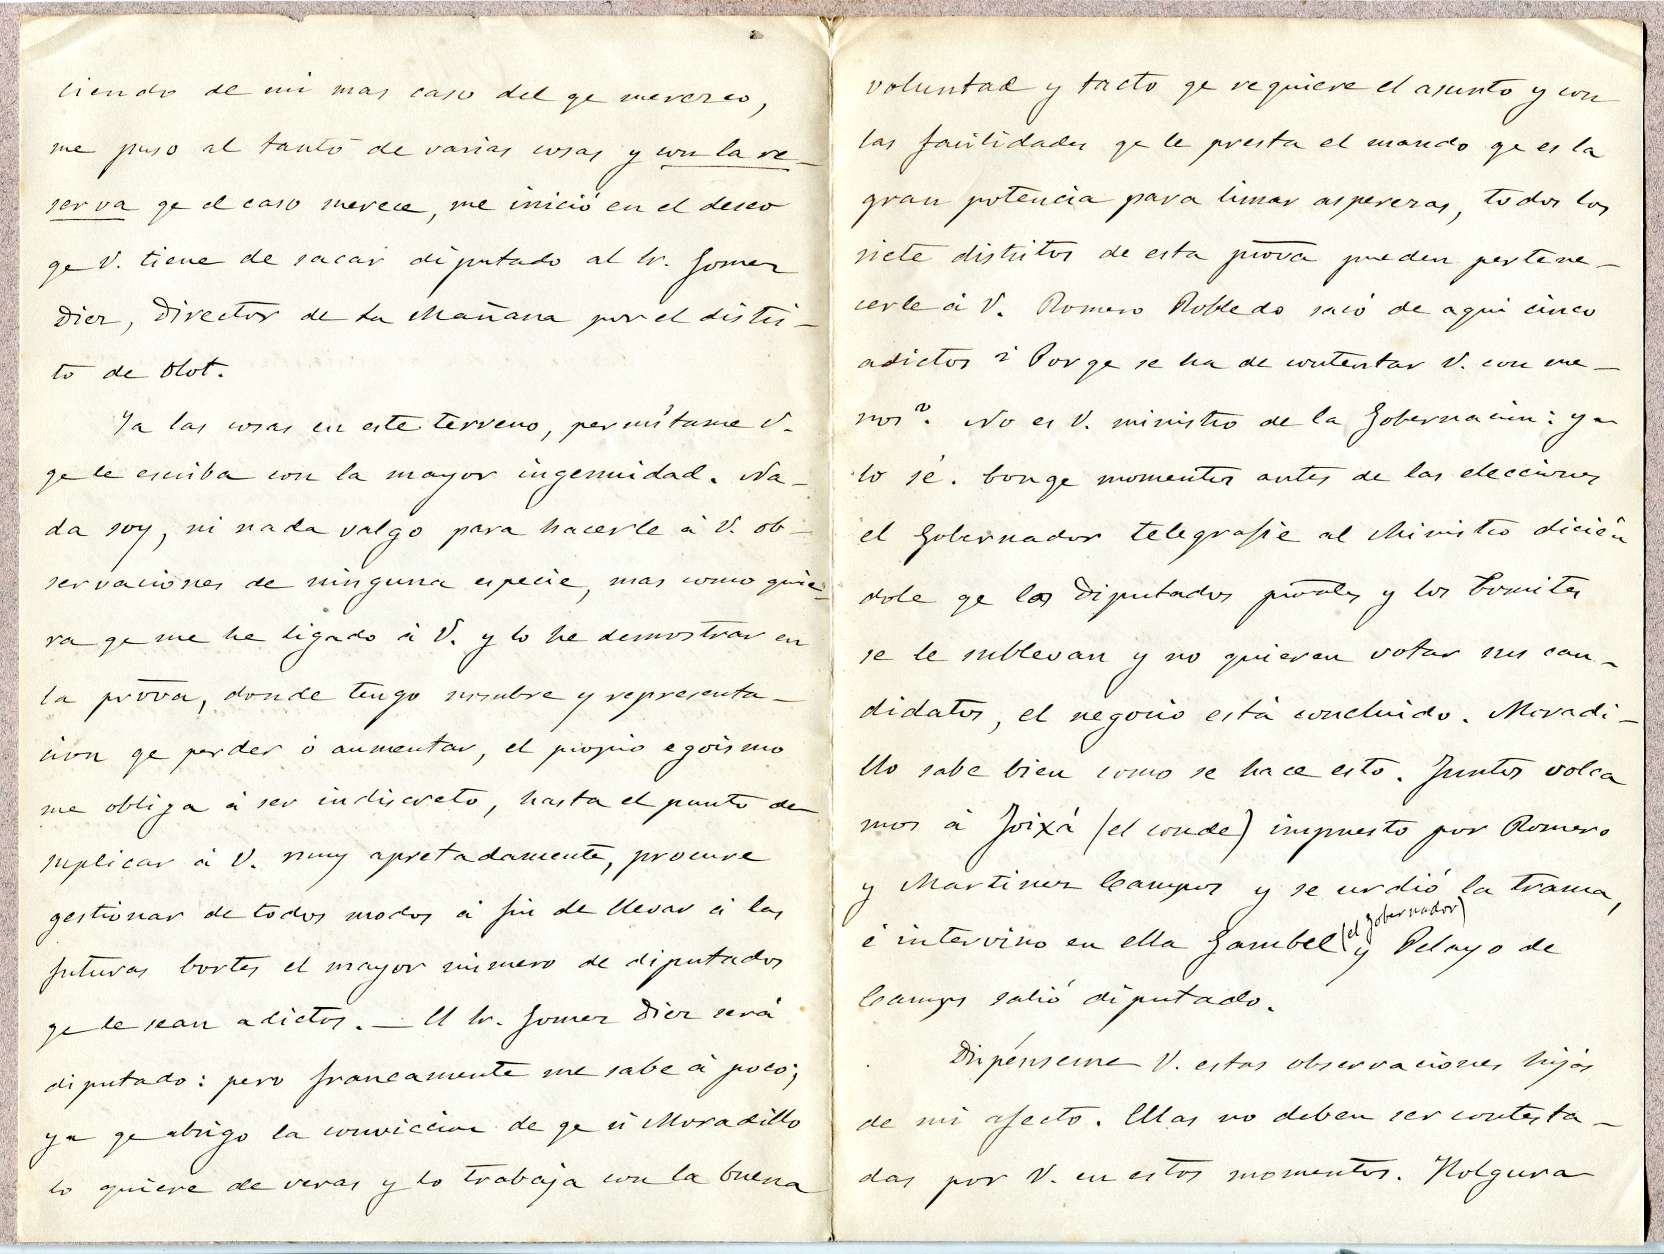 ciendo de mi mas caso del qe merezco,
me puso al tanto de varias cosas y con la re-
serva qe el caso merece, me inició en el deseo
qe V. tiene de sacar diputado al Sr. Gomez
Diez, Director de La Mañana por el distri-
to de Olot.
Ya las cosas en este terreno, permítame V.
qe le escriba con la mayor ingenuidad. Na-
da soy, ni nada valgo para hacerle á V. ob-
servaciones de ninguna especie, mas como quie-
ra qe me he ligado á V. y lo he demostrar en
la prōva, donde tengo nombre y representa-
cion qe perder ó aumentar, el propio egoismo
me obliga á ser indiscreto, hasta el punto de
suplicar á V. muy apretadamente, procure
gestionar de todos modos á fin de llevar á las
futuras Cortes el mayor número de diputados
qe le sean adictos. — El Sr. Gomez Diez será
diputado: pero francamente me sabe á poco;
ya qe abrigo la conviccion de qe si Moradillo
lo quiere de veras y lo trabaja con la buena
voluntad y tacto qe requiere el asunto y con
las facilidades qe le presta el mando qe es la
gran potencia para limar asperezas, todos los
siete distritos de esta prōva pueden pertene-
cerle á V. Romero Robledo sacó de aqui cinco
adictos ¿Porqe se ha de contentar V. con me-
nos? No es V. ministro de la Gobernacion: ya
lo sé. Conqe momentos antes de las elecciones
el Gobernador telegrafíe al Ministro dicién
dole qe los Diputados prōales y los Comites
se le sublevan y no quieren votar sus can-
didatos, el negocio está concluido. Moradi-
llo sabe bien como se hace esto. Juntos volca
mos á Foixá (el conde) impuesto por Romero
y Martinez Campos y se urdió la trama,
é intervino en ella Gambel (el Gobernador) y Pelayo de
Camps salió diputado.
Dispénseme V. estas observaciones hijas
de mi afecto. Ellas no deben ser contesta-
das por V. en estos momentos. Holgura